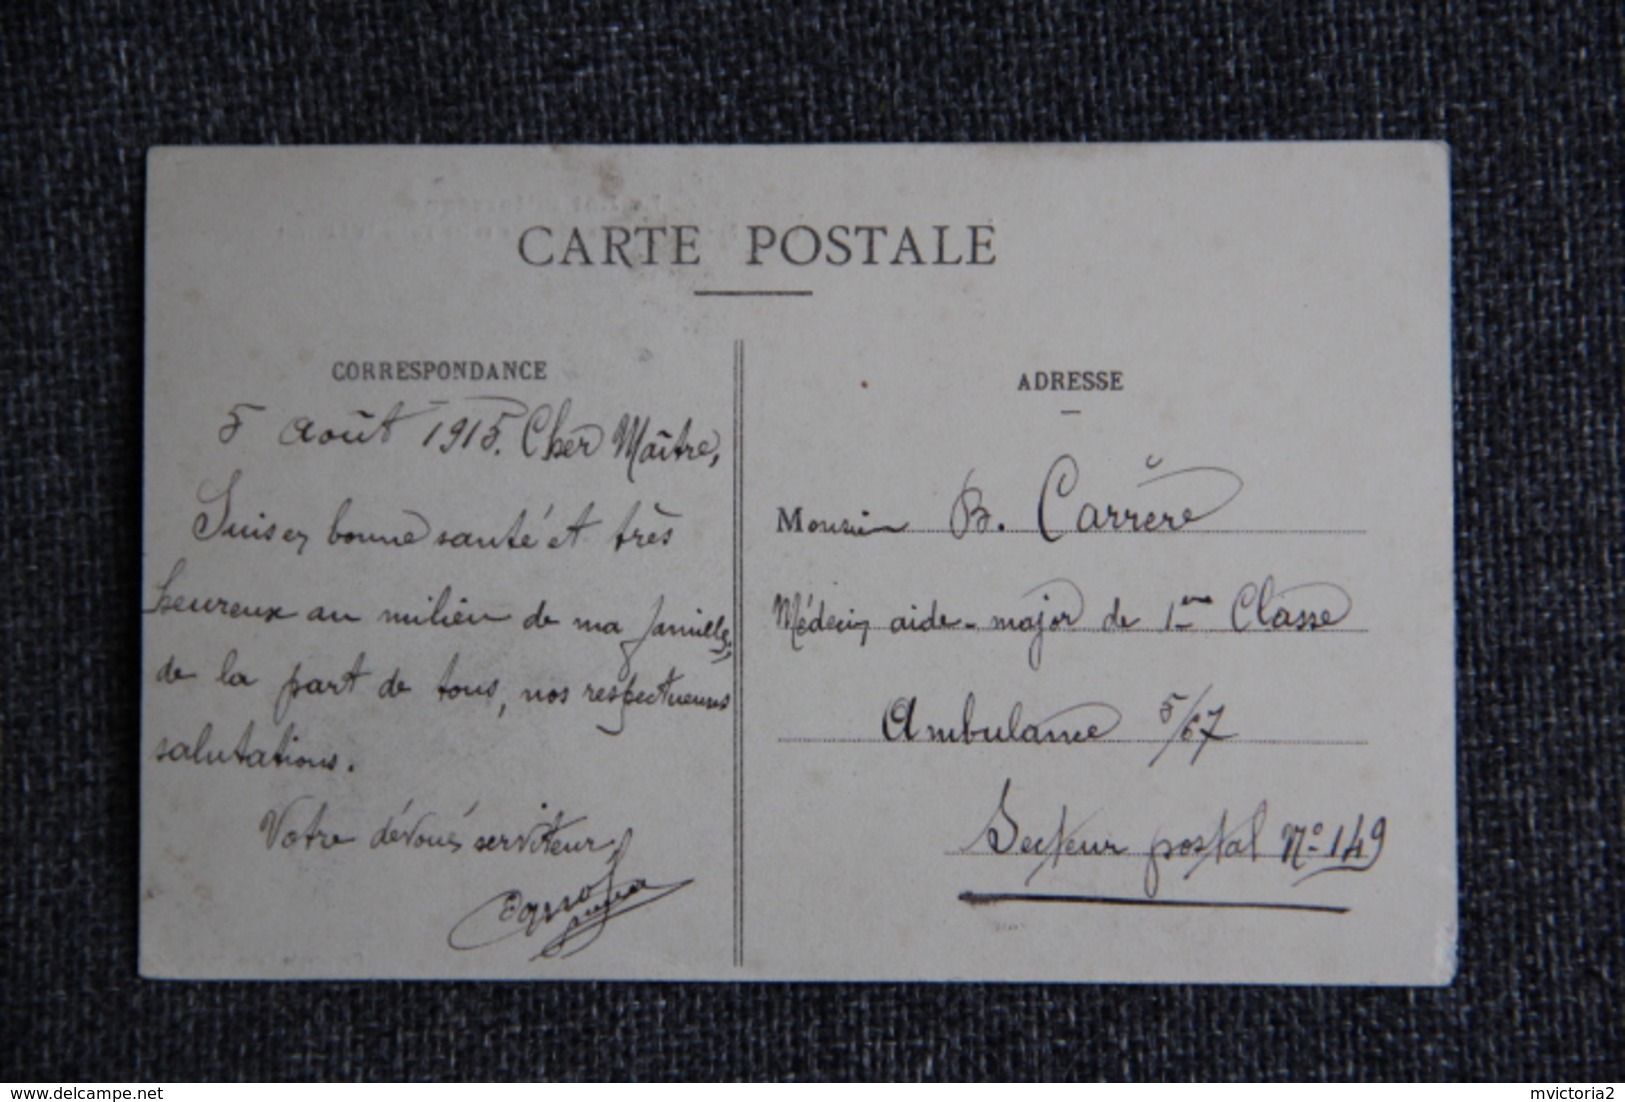 CARTE POSTALE
CORRESPONDANCE
5 août 1915. Cher Maître,
Suis en bonne santé et très
heureux au milieu de ma famille,
de la part de tous, nos respectueuses
salutations.
Votre dévoué serviteur
ADRESSE
Monsieur B. Carrère
Médecin aide-major de 1ère Classe
Ambulance 5/67
Secteur postal No 149
www.delcampe.net
mvictoria2